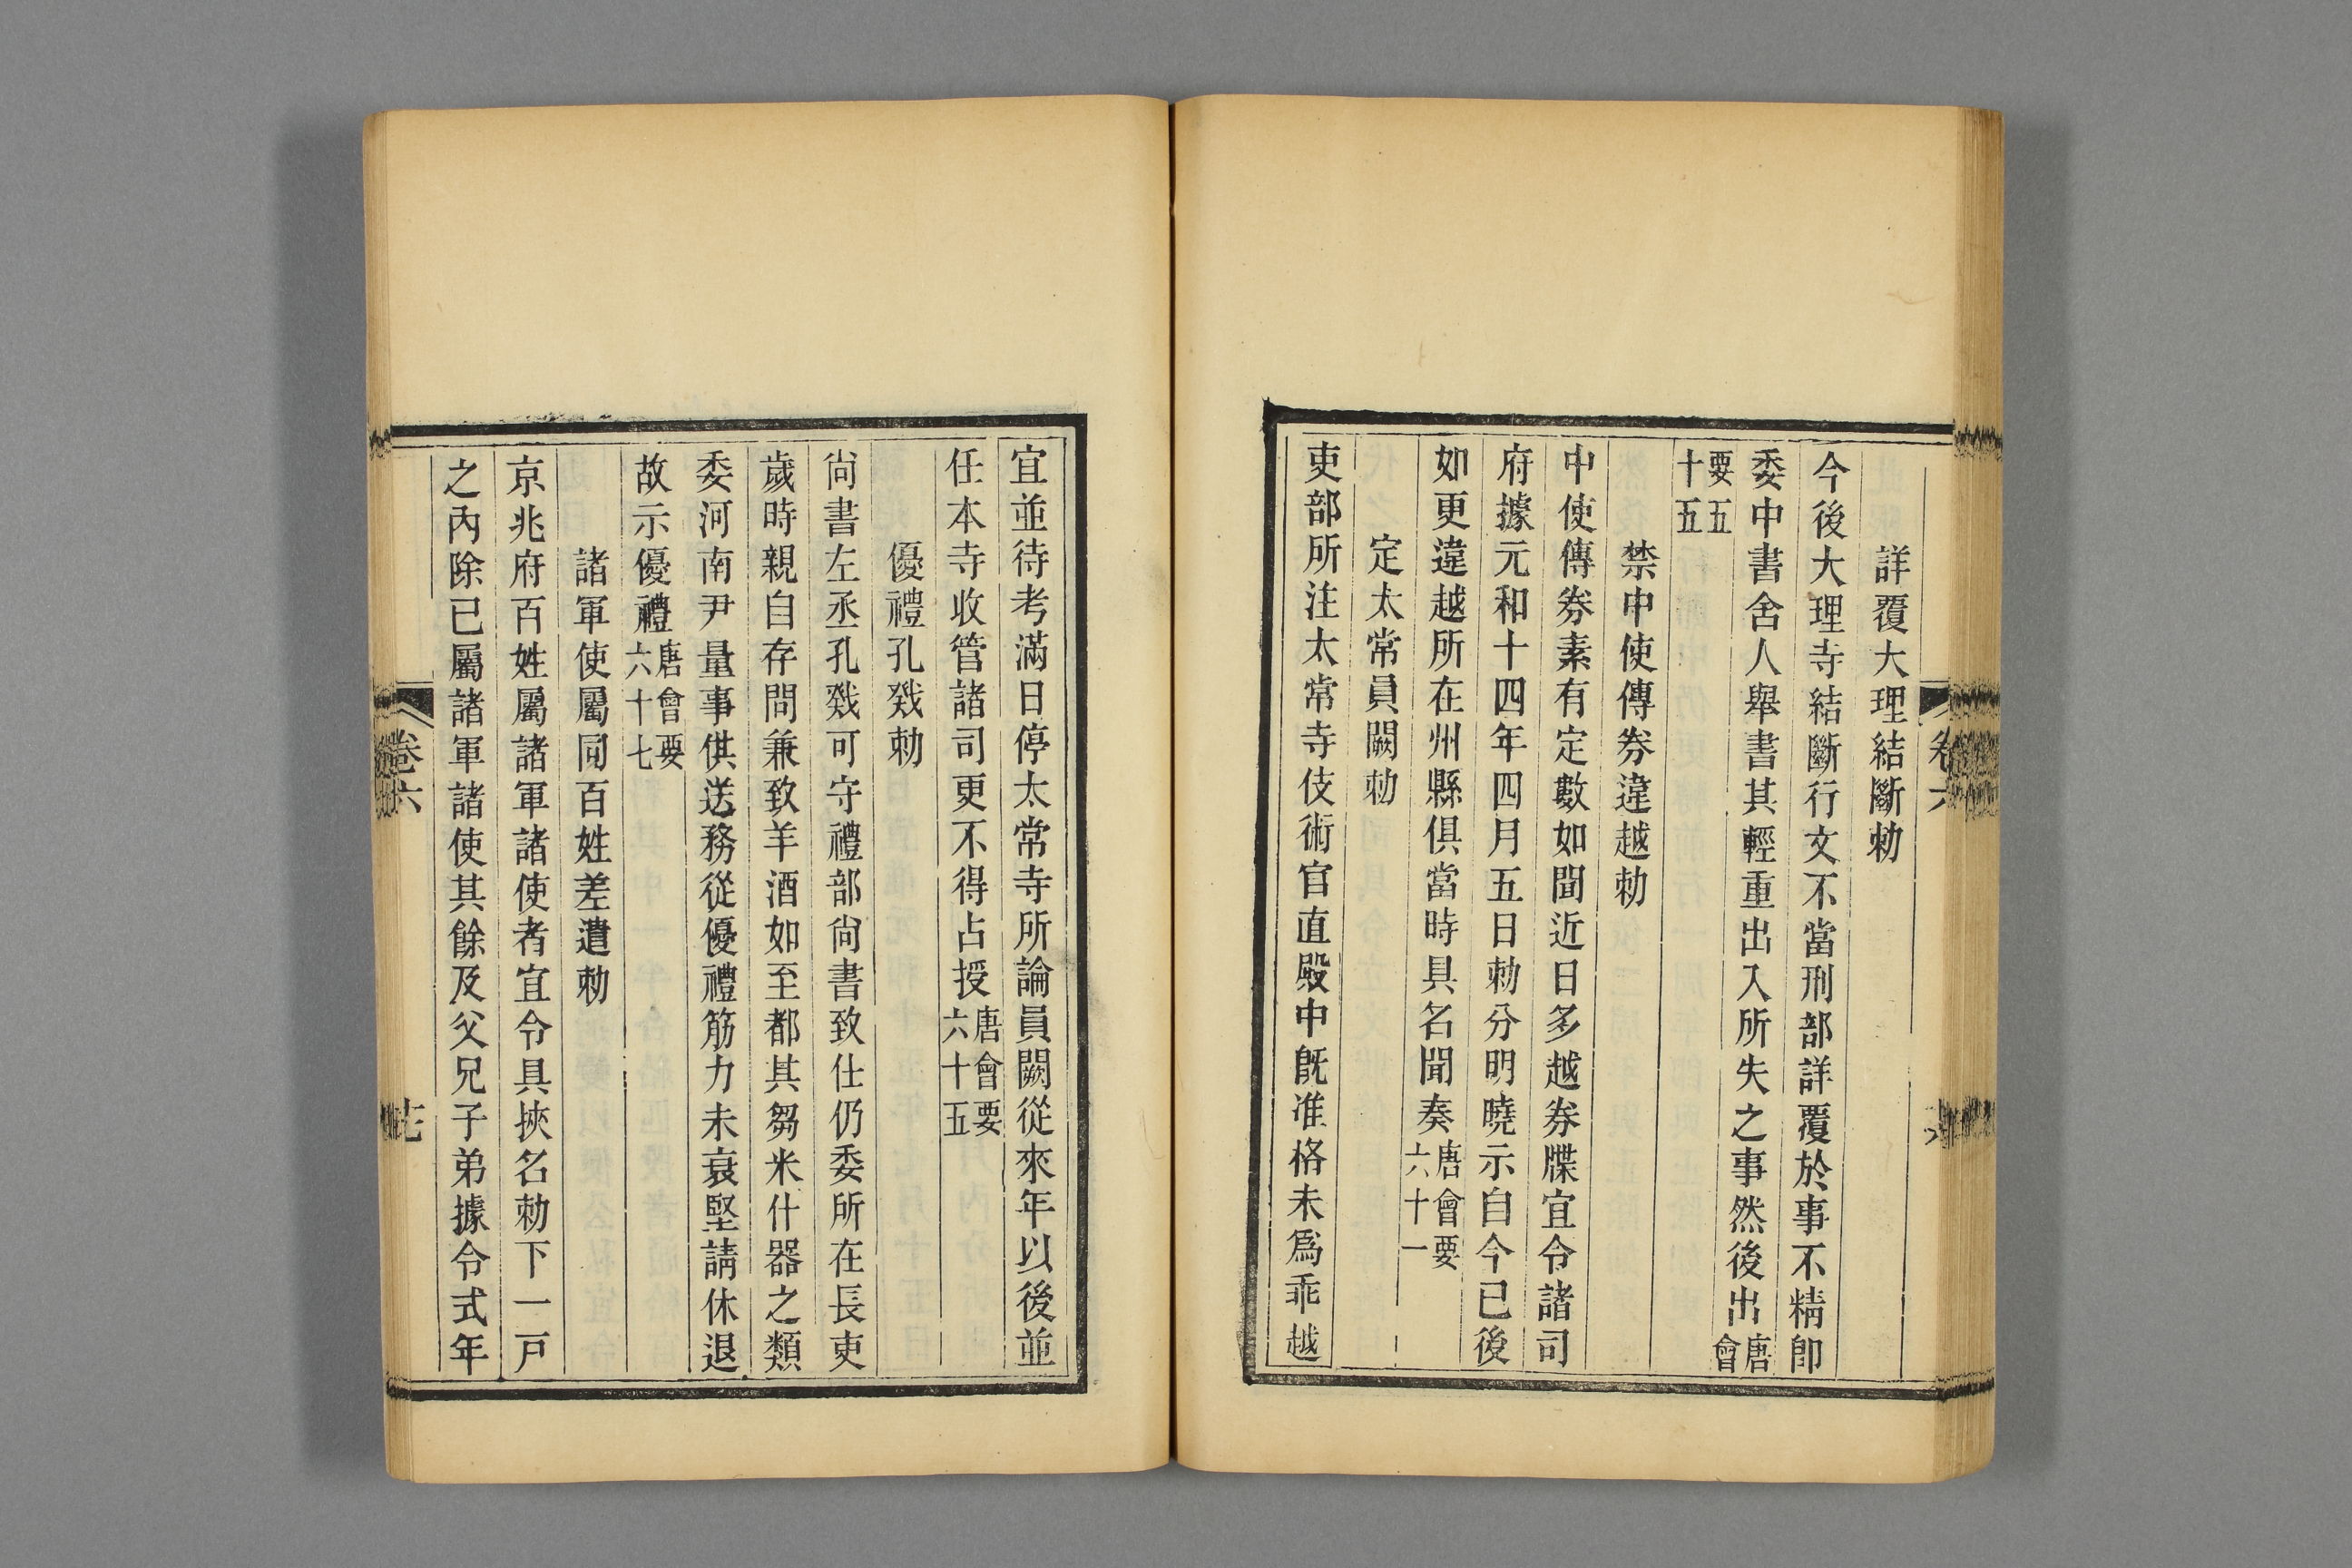 詳覆大理結斷勅
今後大理寺結斷行文不當刑部詳覆於事不精卽
委中書舍人舉書其輕重出入所失之事然後出唐會
要五十五
禁中使傳券違越勅
中使傳券素有定數如聞近日多越券牒宜令諸司
府據元和十四年四月五日勅分明曉示自今已後
如更違越所在州縣俱當時具名聞奏唐會要六十一
定太常員闕勅
吏部所注太常寺伎術官直殿中旣准格未爲乖越
宜並待考滿日停太常寺所論員闕從來年以後並
任本寺收管諸司更不得占授唐會要六十五
優禮孔戣勅
尙書左丞孔戣可守禮部尙書致仕仍委所在長吏
歲時親自存問兼致羊酒如至都其芻米什器之類
委河南尹量事供送務從優禮筋力未衰堅請休退
故示優禮唐會要六十七
諸軍使屬同百姓差遣勅
京兆府百姓屬諸軍諸使者宜令具挾名勅下一戸
之內除已屬諸軍諸使其餘及父兄子弟據令式年
卷六